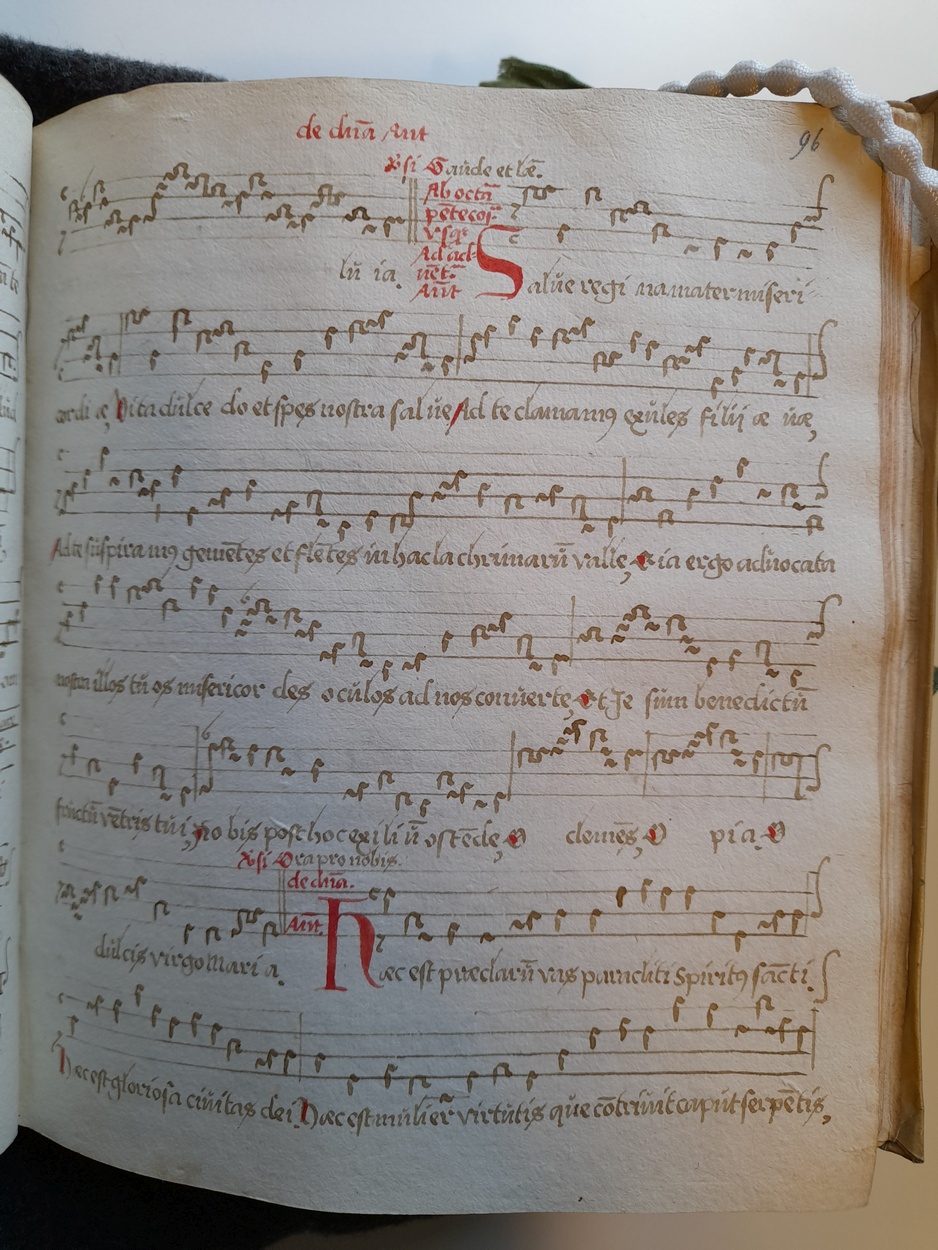 de dnā Ant
96
℣si Gaude et lē.
Ab octā
pētecos.
vsq
Ad ad-
uēt.
Ant
lu ia. Salue regi na mater miseri
cordi æ, Vita dulce do et spes nostra salue, Ad te clamamꝯ exules filij æ uæ,
Ad te suspira mꝯ gemētes et flētes in hac lachrimarū valle, Eia ergo aduocata
nostra illos tu os misericor des oculos ad nos conuerte, Et Je sum benedictū
fructū vētris tui, No bis post hoc exi li ū ostēde, O clemēs, O pia. O
℣si Ora pro nobis.
de dnā.
dulcis virgo Mari a.
Ant. Hæc est præclarū vas paracliti Spiritꝯ sācti.
Hæc est gloriosa ciuitas dei Hæc est mulier virtutis que cōtriuit caput serpētis,